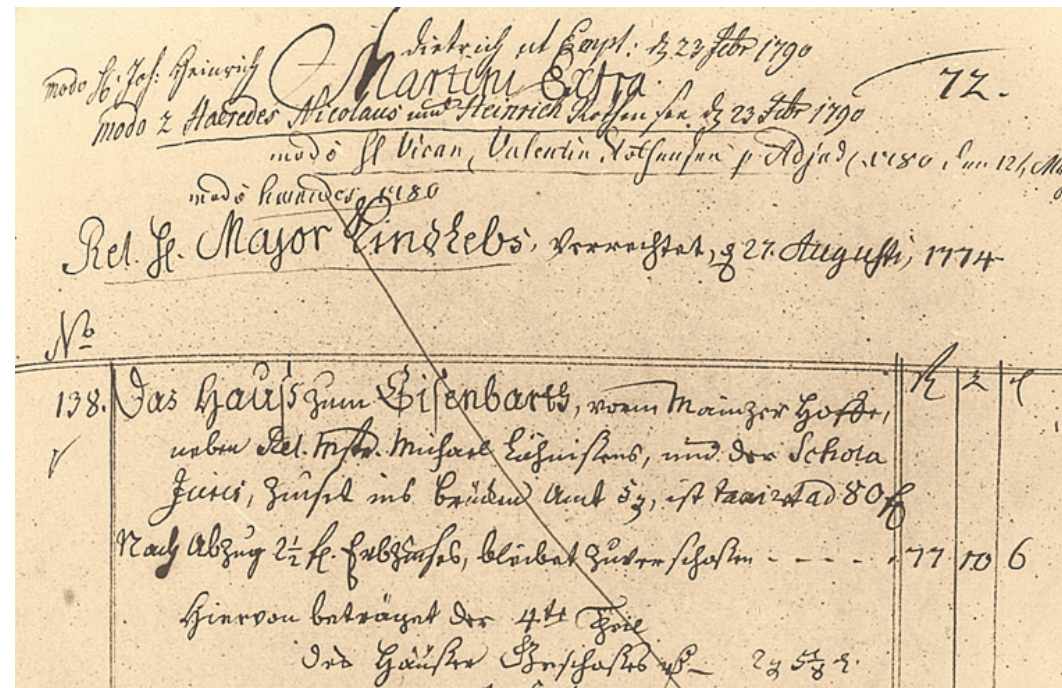 dietrich ut Empt: d 23 Febr 1790
modo H. Joh: Heinrich
Martini Extra.
72.
modo 2 Haeredes Nicolaus und Heinrich Rothensee d 23 Febr 1790
modo H Vican, Valentin Rothensee p Adjud 1780 den 12
modo haeredes 1780
Rel. H. Major Lindlebs, verrechtet, d 27. Augusti, 1774
No
138. Das Hauß zum Eisenbarth, vorm Mainzer Hoffe,
neben Rel. Mstr. Michael und der Schola
Juris, zinset ins brücken Amt 5 ist taxiret ad 80
Nach Abzug 2½ fl. Erbzinses, bleibet zuverschoßen - - - - . 77 10 6
Hiervon beträget der 4te Theil
des Häußer Geschoßes